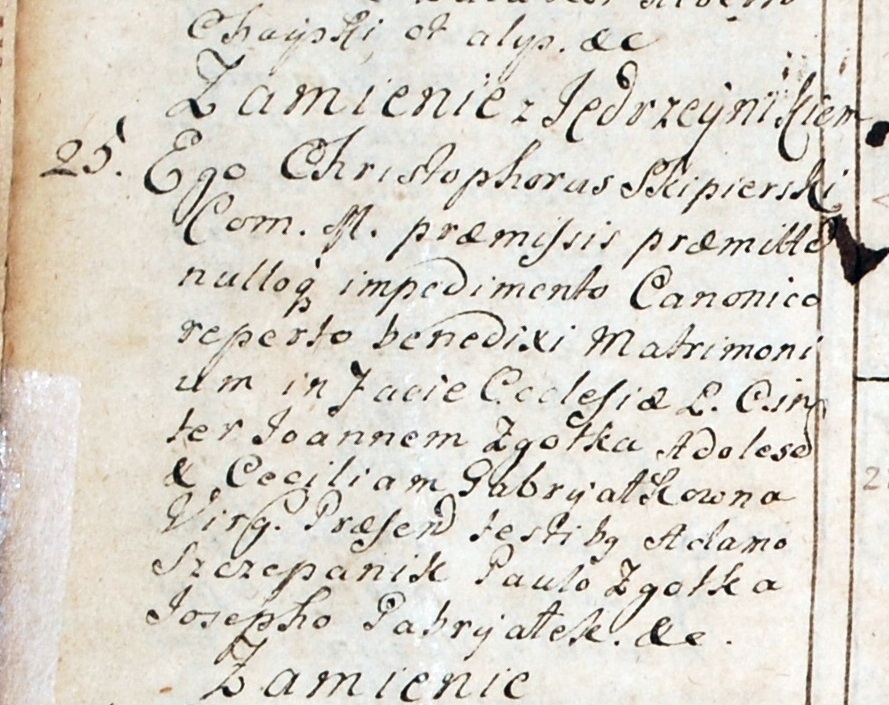 Chayski, et alys. &c
Zamienie z Jędrzeynikiem
25. Ego Christophorus Skipierski
Com. M. præmissis præmittd
nulloq impedimento Canonico
reperto benedixi Matrimoni
um in facie Ecclesiæ L. C. in
ter Joannem Zgotka Adolesc
& Ceciliam Gabryałkowna
Virg. Præsend testibq Adamo
Szczepanik Paulo Zgotka
Josepho Gabryałek. &c.
Zamienie